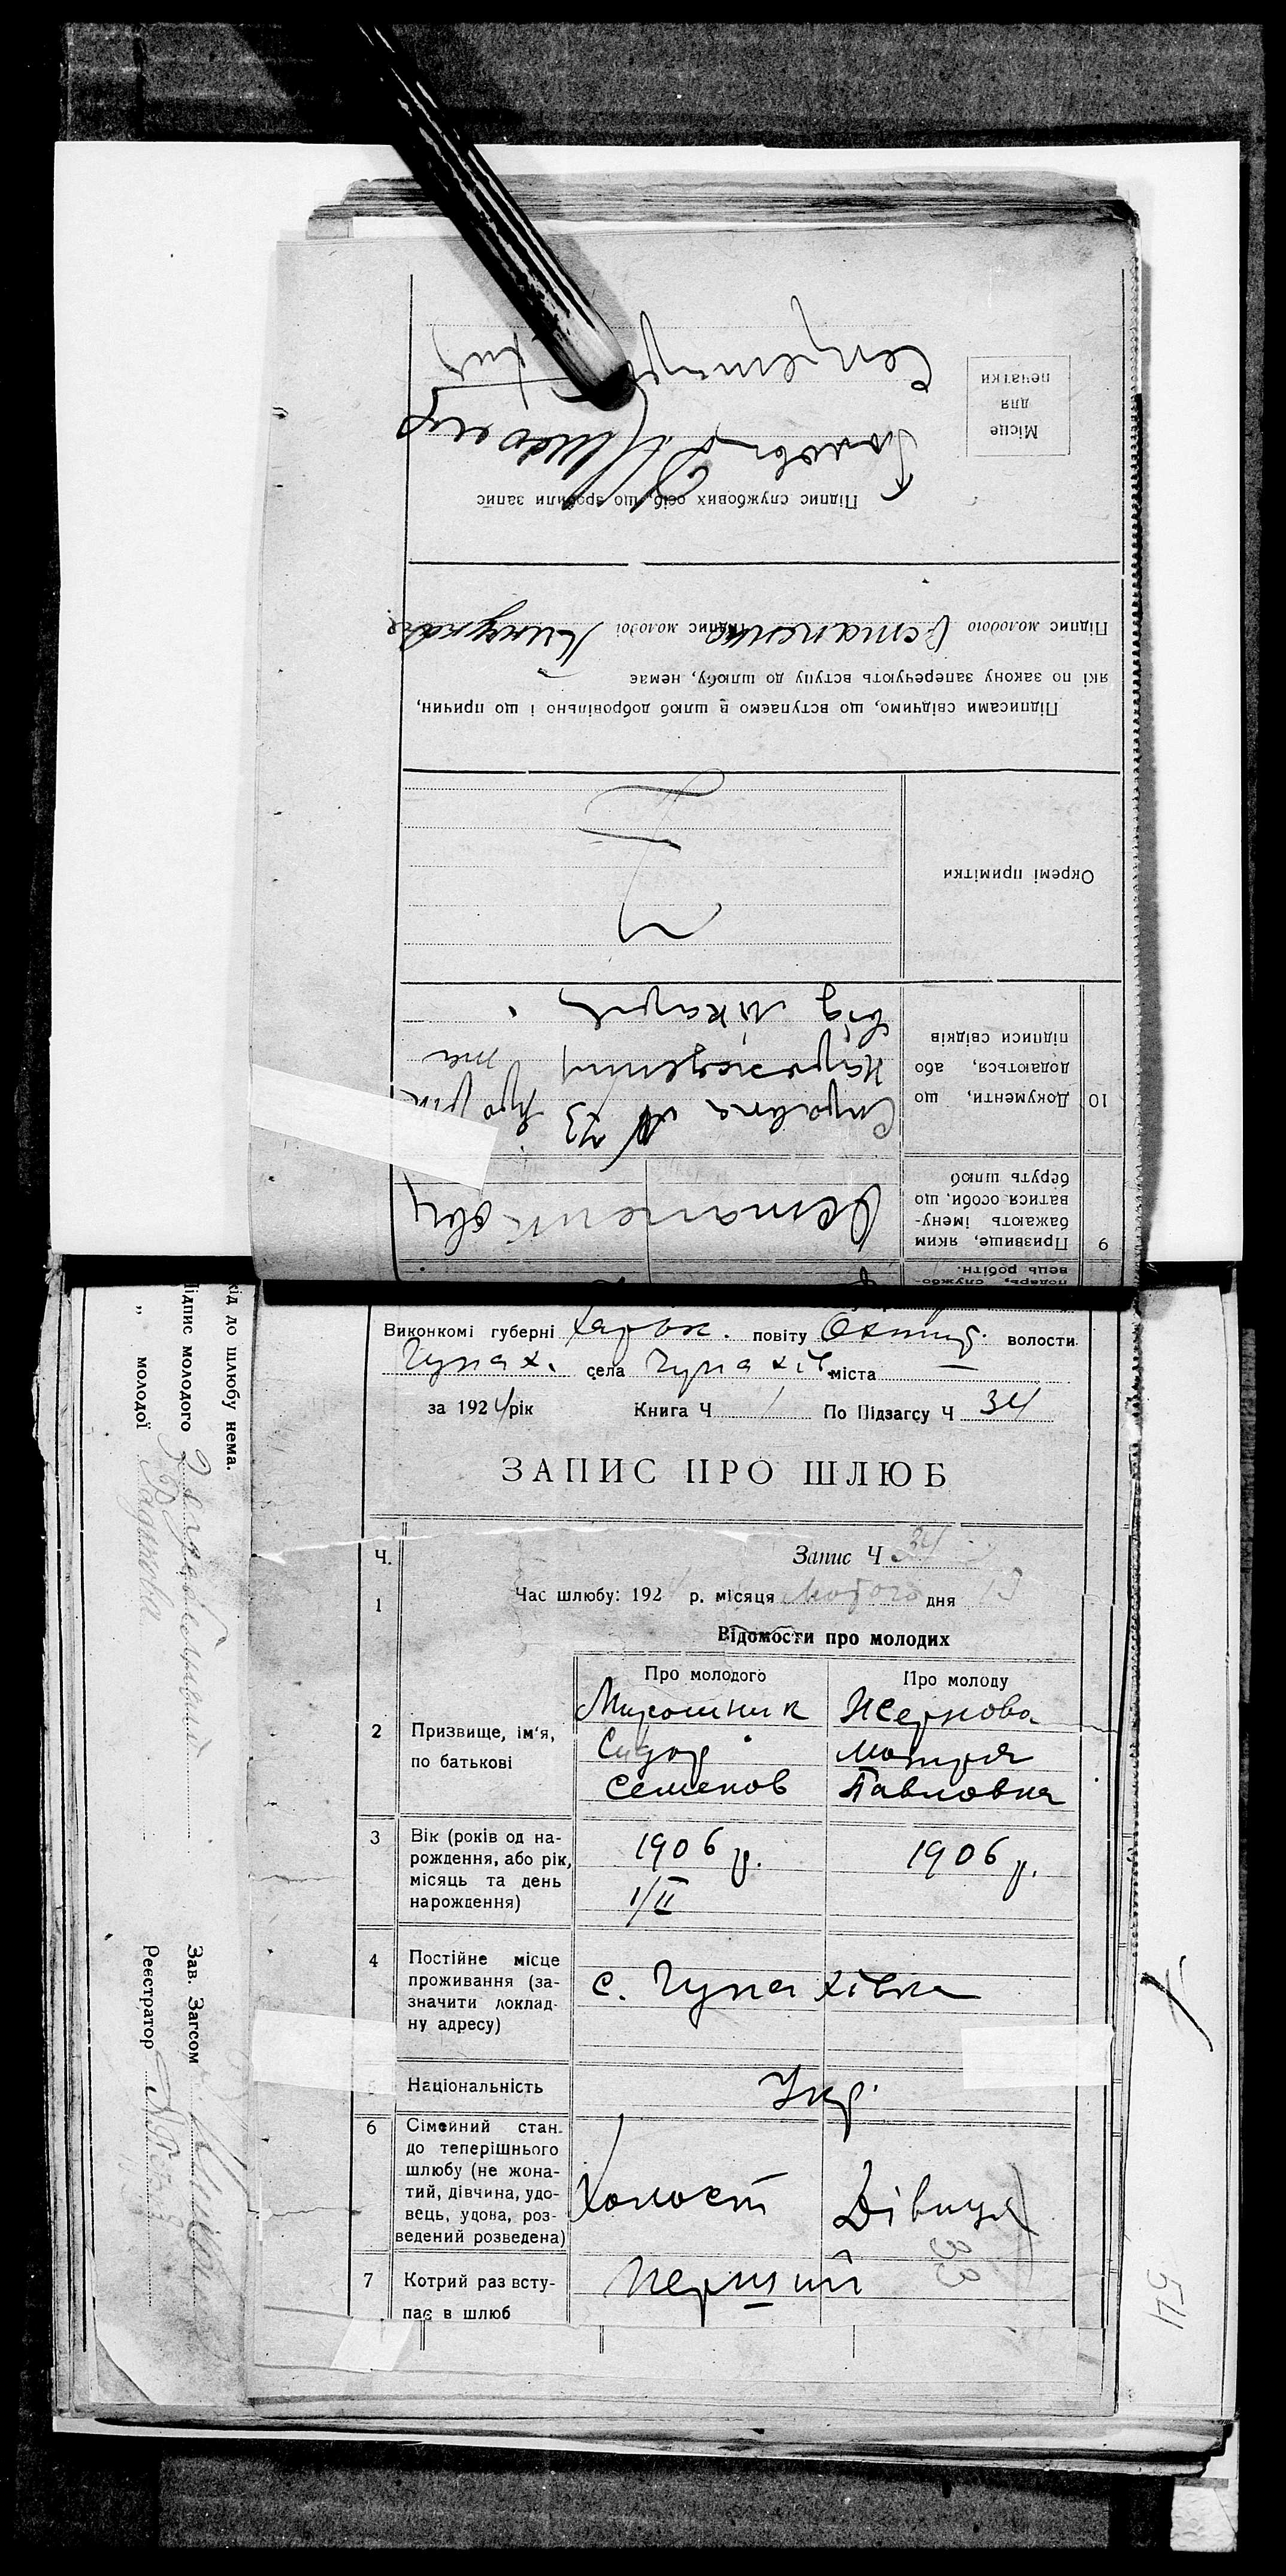 Виконкомі губерні Харьк. повіту Охтир. волости
Чупах. села Чупахів. міста —
за 1924 рік Книга Ч 1 По Підзагсу Ч 34
ЗАПИС ПРО ШЛЮБ
Ч. Запис Ч 34
1 Час шлюбу: 192 р. місяця Лютого дня
Відомости про молодих
Про молодого Про молоду
2 Призвище, ім'я, по батькові
Мирошник Жернова
Сидор Мотря
Семенов Павловна
3 Вік (років од на-
рождення, або рік,
місяць та день
нарождення)
1906 р. 1906 р.
1/II
4 Постійне місце
проживання (за-
значити доклад-
ну адресу)
с. Чупахівка
Національність Укр.
6 Сімейний стан
до теперішнього
шлюбу (не жона-
тий, дівчина, удо-
вець, удова, роз-
ведений розведена)
Холост Дівиця
33
7 Котрий раз всту-
пає в шлюб
Перший
54
вець робітн.
9 Призвище, яким
бажають імену-
ватися особи, що
беруть шлюб
10 Документи, що
додаються, або
підписи свідків
Справка № 73 про рік
нарождения та
від лікаря
Окремі примітки
Підписами свідчимо, що вступаємо в шлюб добровільно і що причин,
які по закону заперечують вступу до шлюбу, немає
Підпис молодого Остапенко Підпис молодої
Підпис службових осіб, що зробили запис
Місце
для
печатки
Голова
Секретарь
хід до шлюбу нема.
Підпис молодого
„ молодої
Зав. Загсом
Реєстратор